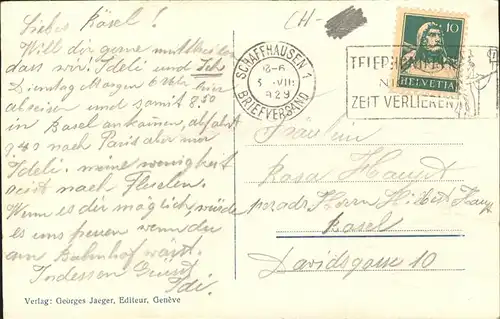 Liebes Rösel!
Will dir gerne mitteilen
dass wir! Ideli und Ich
Dienstag Morgen 6 Uhr hier
abreise und somit 8.50
in Basel ankommen, abfahrt
9 40 nach Paris aber nur
Ideli. meine wenigkeit
reist nach Fluelen.
Wenn es dir möglich, würde
es uns freuen wenn du
am Bahnhof wärst.
Indessen Grüsst
Idi.
Verlag: Georges Jaeger, Editeur, Genève
CH-
SCHAFFHAUSEN 1
18-6
VIII
1929
BRIEFVERSAND
TELEPHONIEREN
ZEIT VERLIEREN
10
HELVETIA
Fräulein
Rosa
Herrn
Basel
Davidsgasse 10